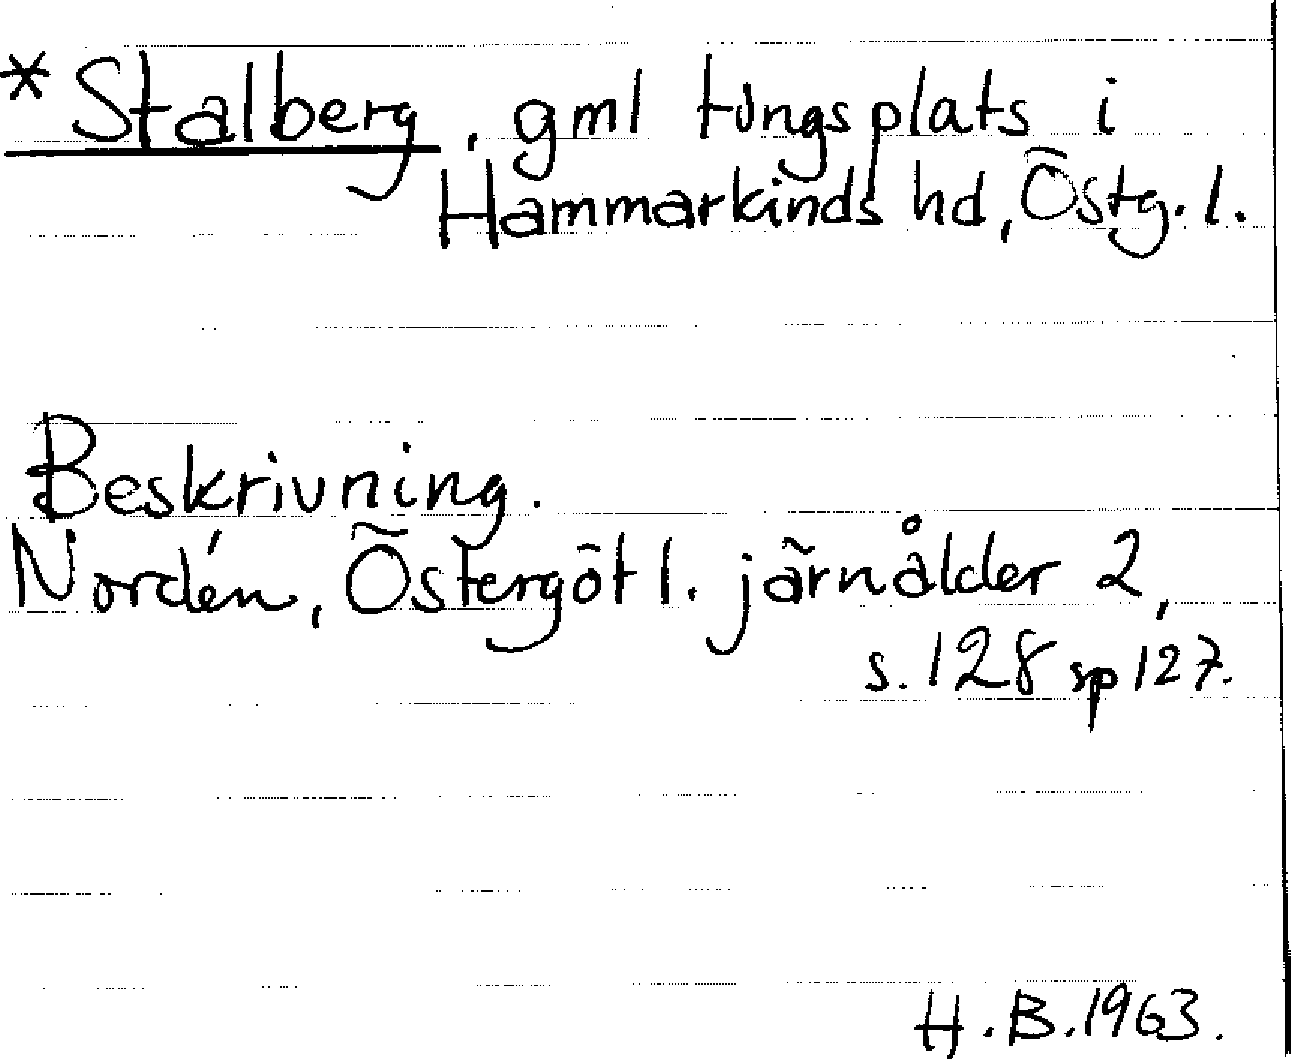 *Stalberg, gml tingsplats i
Hammarkinds hd, Östg. l.
Beskrivning.
Nordén, Östergötl. järnålder 2,
s. 128 sp 127.
H. B. 1963.